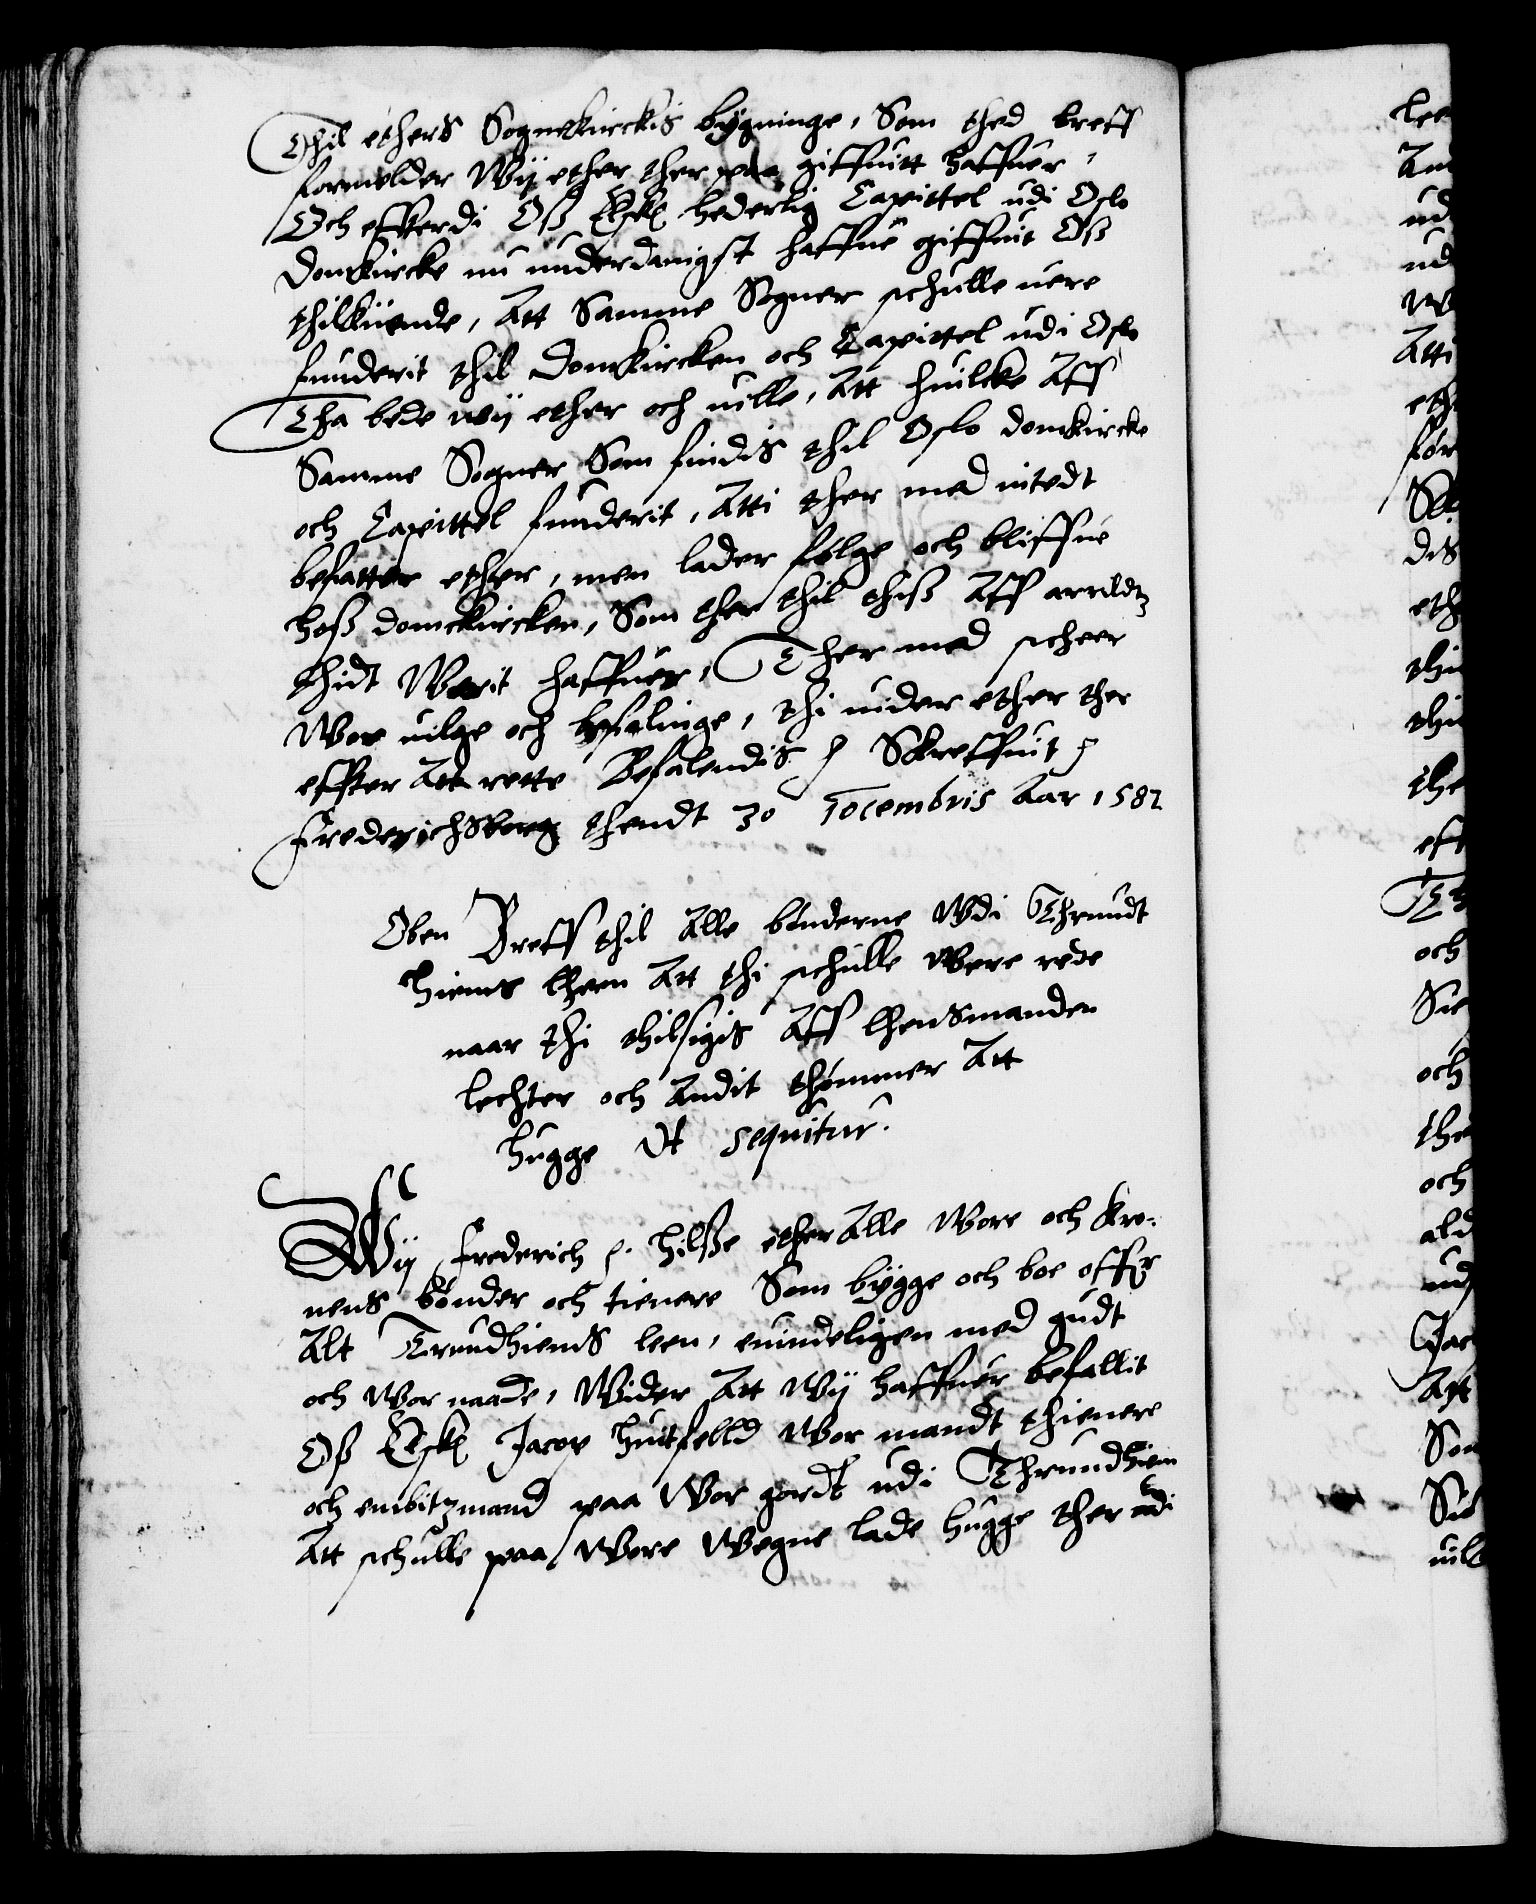 Thil ethers Sognekirckis bygninge, Som thed breff
formelder Wij ether ther paa giffuitt haffuer,
Och efftterdi Oß Elsk hederlig Capittel udi Oslo
Domkircke nu underdanigst haffue giffuit Oß
thilkiende, Att Samme Sogner schulle uere
funderit thil Domkircken och Capittel udi Oslo
Tha bede wij ether och uille, Att huilcke Aff
Samme Sogner Som findis thil Oslo domkircke
och Capittel funderit, Atti ther med intedt
befatter ether, men lader følge och bliffue
hoß domckircken, Som ther thil thiß Aff arrildtz
thidt Werit haffuer, Ther med scheer
Wor uilge och befalinge, thi uider ether ther
effter Att rette Befalendis Skreffuit
Frederichsborg thendt 30 10cembris Aar 1582
Oben Breff thil Alle bønderne Wdi Thrundt
hiems lheen Att thi schulle Were rede
naar thi thilsigis Aff lhensmanden
lechter och Andit thømmer Att
hugge Ut sequitur.
Wij Frederich hilße ether Alle Wore och kro-
nens bønder och tienere Som bygge och boe offr
Alt Trundhiems leen, euindeligen med gudt
och Wor naade, Wider Att Wij haffuer befallit
Oß Elsk Jacop Huitfelld Wor mandt thienere
och embitzmand paa Wor gordt udi Thrundhiem
Att schulle paa Wore Wegne lade hugge ther udi
lee
ud
ud
W
Atti
eth
før
dis
eth
the
eff
och
Sie
och
the
och
ald
Jac
Att
Som